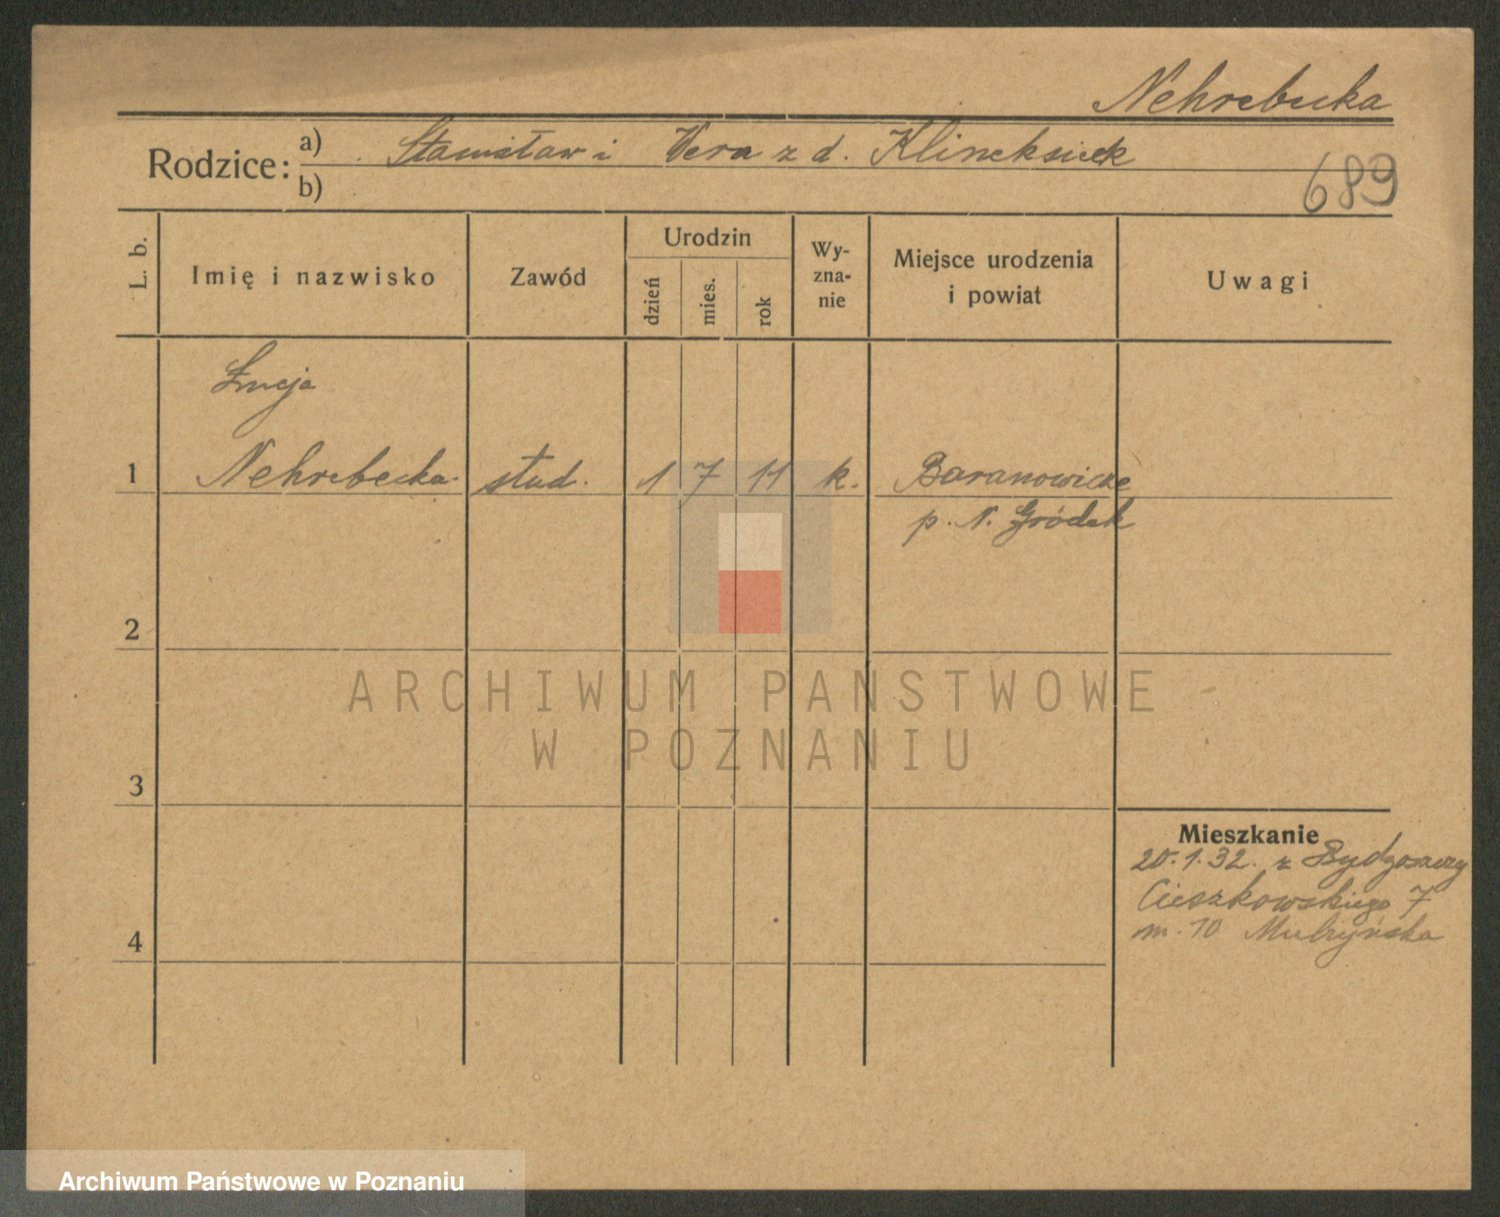 Nehrebecka
Rodzice:
a) Stanisław i Vera z d. Klincksieck
b)
689
L. b.
Imię i nazwisko
Zawód
Urodzin
dzień
mies.
rok
Wy-
zna-
nie
Miejsce urodzenia
i powiat
Uwagi
Łucja
1 Nehrebecka stud. 1 7 11 k. Baranowicze
p. N. Gródek
2
ARCHIWUM PANSTWOWE
W POZNANIU
3
Mieszkanie
20.1.32. z Bydgoszczy
Cieszkowskiego 7
4
m. 10
Archiwum Państwowe w Poznaniu